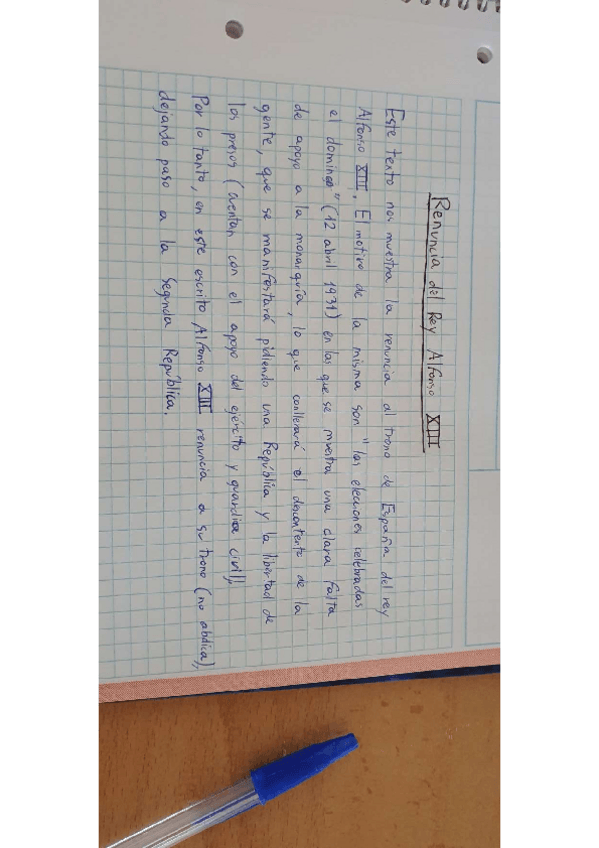 Renuncia del Rey Alfonso XIII
Este texto nos muestra la renuncia al trono de España del rey
Alfonso XIII. El motivo de la misma son "las elecciones celebradas
el domingo" (12 abril 1931) en las que se muestra una clara falta
de apoyo a la monarquía, lo que conllevará el descontento de la
gente, que se manifestará pidiendo una República y la libertad de
los presos (cuentan con el apoyo del ejército y guardia civil).
Por lo tanto, en este escrito Alfonso XIII renuncia a su trono (no abdica),
dejando paso a la Segunda República.